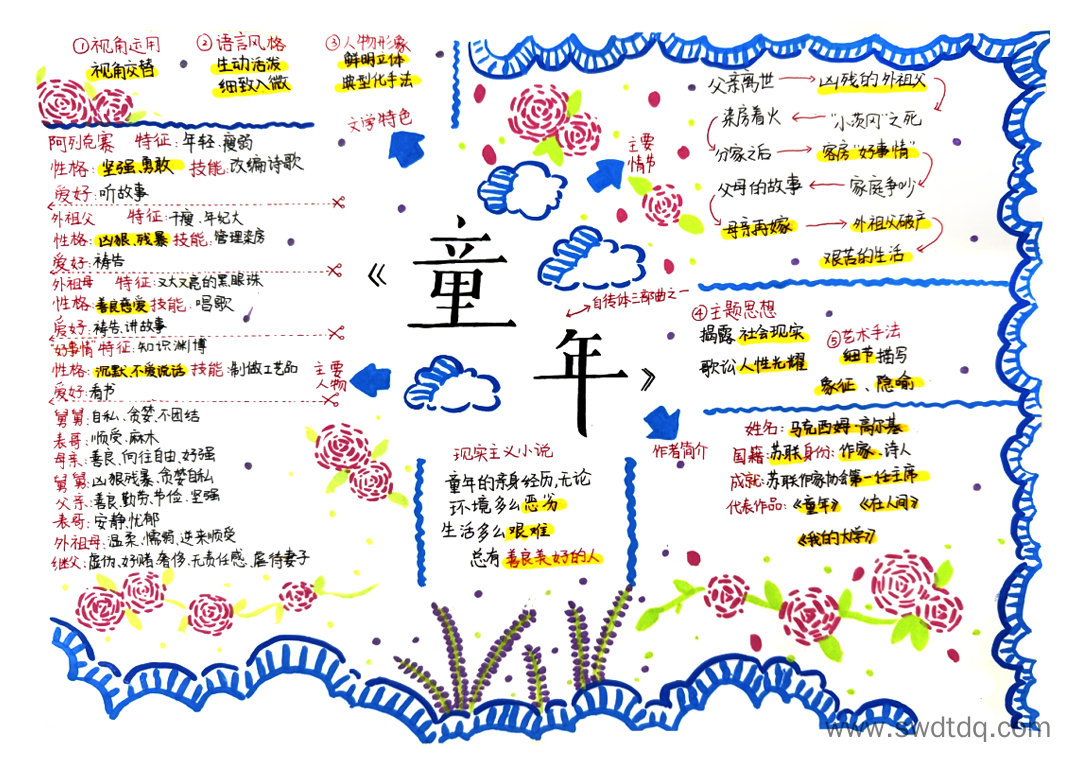 ①视角运用
视角交替
②语言风格
生动活发
细致入微
③人物形象
鲜明立体
典型化手法
文学特色
阿列克塞 特征:年轻、瘦弱
性格:坚强、勇敢 技能:改编诗歌
爱好:听故事
外祖父 特征:干瘦、年纪大
性格:凶狠、残暴 技能:管理染房
爱好:祷告
外祖母 特征:又大又亮的黑眼珠
性格:善良慈爱 技能:唱歌
爱好:祷告、讲故事
"好事情" 特征:知识渊博
性格:沉默、不爱说话 技能:制做工艺品
爱好:看书
主要
人物
舅舅:自私、贪婪、不团结
表哥:顺受、麻木
母亲:善良、向往自由、好强
舅舅:凶狠残暴、贪婪自私
父亲:善良、勤劳、节俭、坚强
表哥:安静、忧郁
外祖母:温柔、懦弱、逆来顺受
继父:虚伪、好赌、奢侈、无责任感、虐待妻子
《童年》
自传体三部曲之一
现实主义小说
童年的亲身经历,无论
环境多么恶劣
生活多么艰难
总有善良美好的人
主要
情节
父亲离世 → 凶残的外祖父
染房着火 ← "小茨冈"之死
分家之后 → 客房"好事情"
父母的故事 ← 家庭争吵
母亲再嫁 → 外祖父破产
艰苦的生活
④主题思想
揭露社会现实
歌讼人性光耀
⑤艺术手法
细节描写
象征、隐喻
作者简介
姓名:马克西姆·高尔基
国籍:苏联 身份:作家、诗人
成就:苏联作家协会第一任主席
代表作品:《童年》《在人间》
《我的大学》
www.swdtdq.com